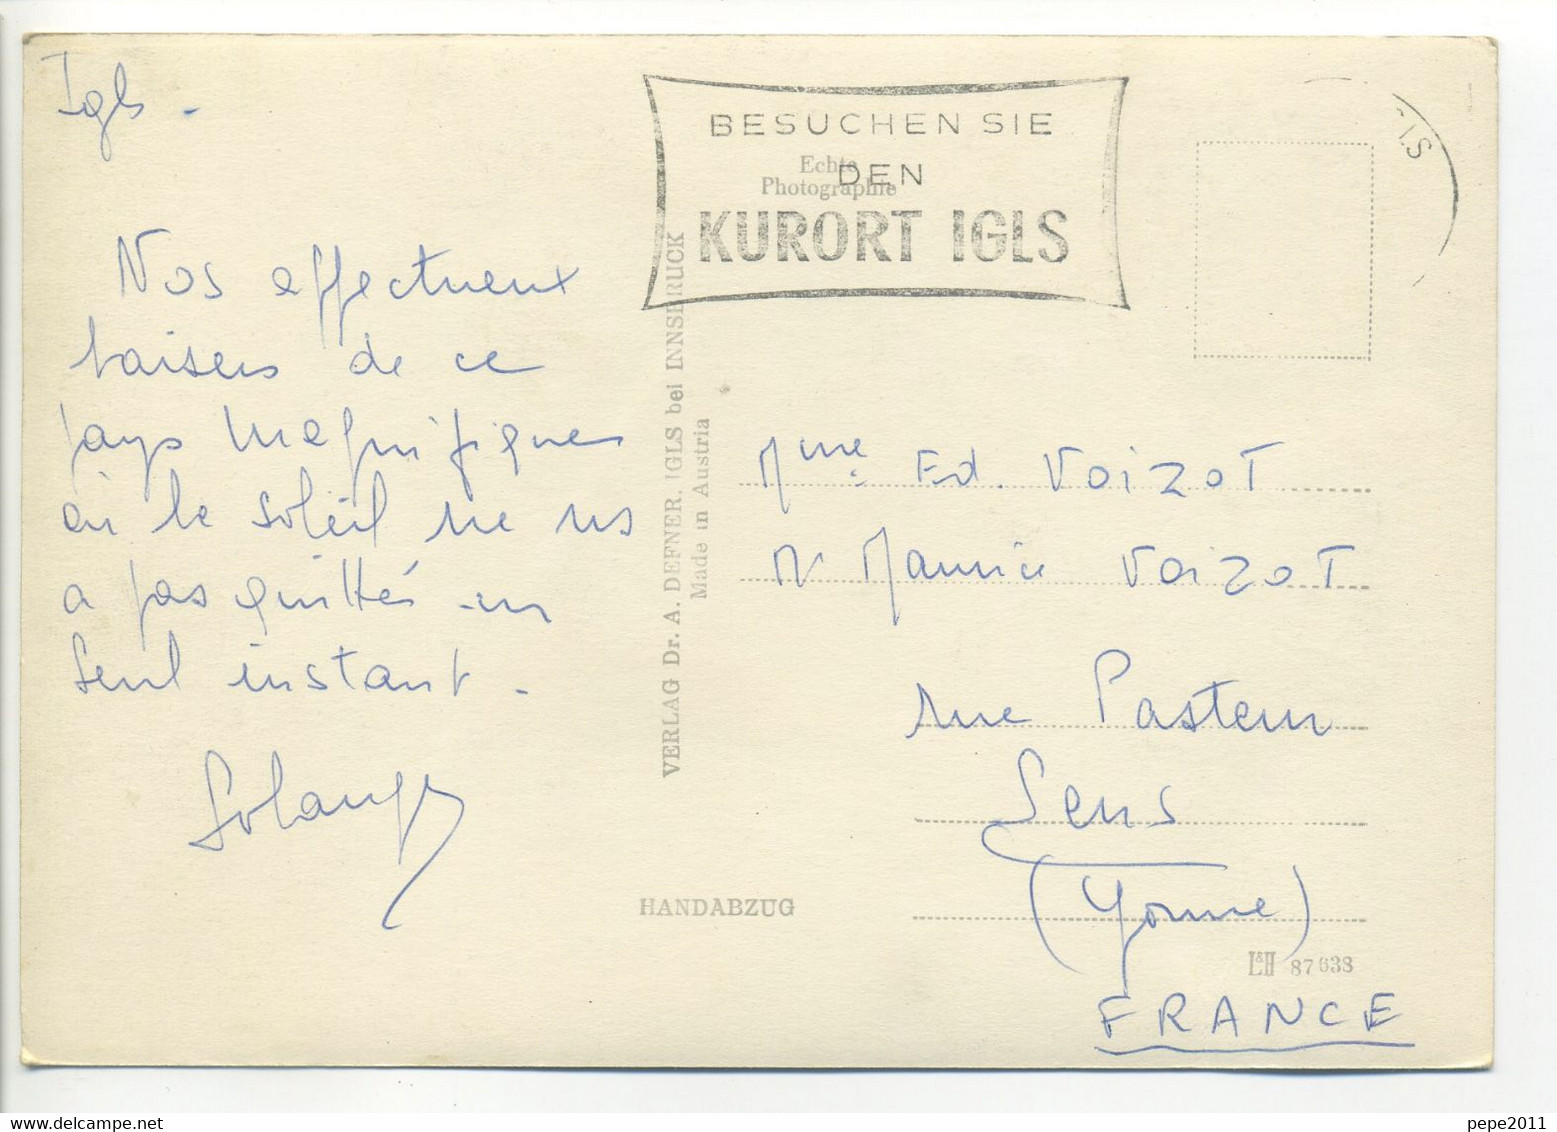 Igls -
Nos affectueux
baisers de ce
pays magnifique
où le soleil ne ns
a pas quittés un
seul instant -
Solange
BESUCHEN SIE
DEN
KURORT IGLS
Echte
Photographie
VERLAG Dr. A. DEFNER, IGLS bei INNSBRUCK
Made in Austria
HANDABZUG
Mme Ed. VOIZOT
Mr Maurice VOIZOT
rue Pasteur
Sens
(Yonne)
L&H 87638
FRANCE
pepe2011